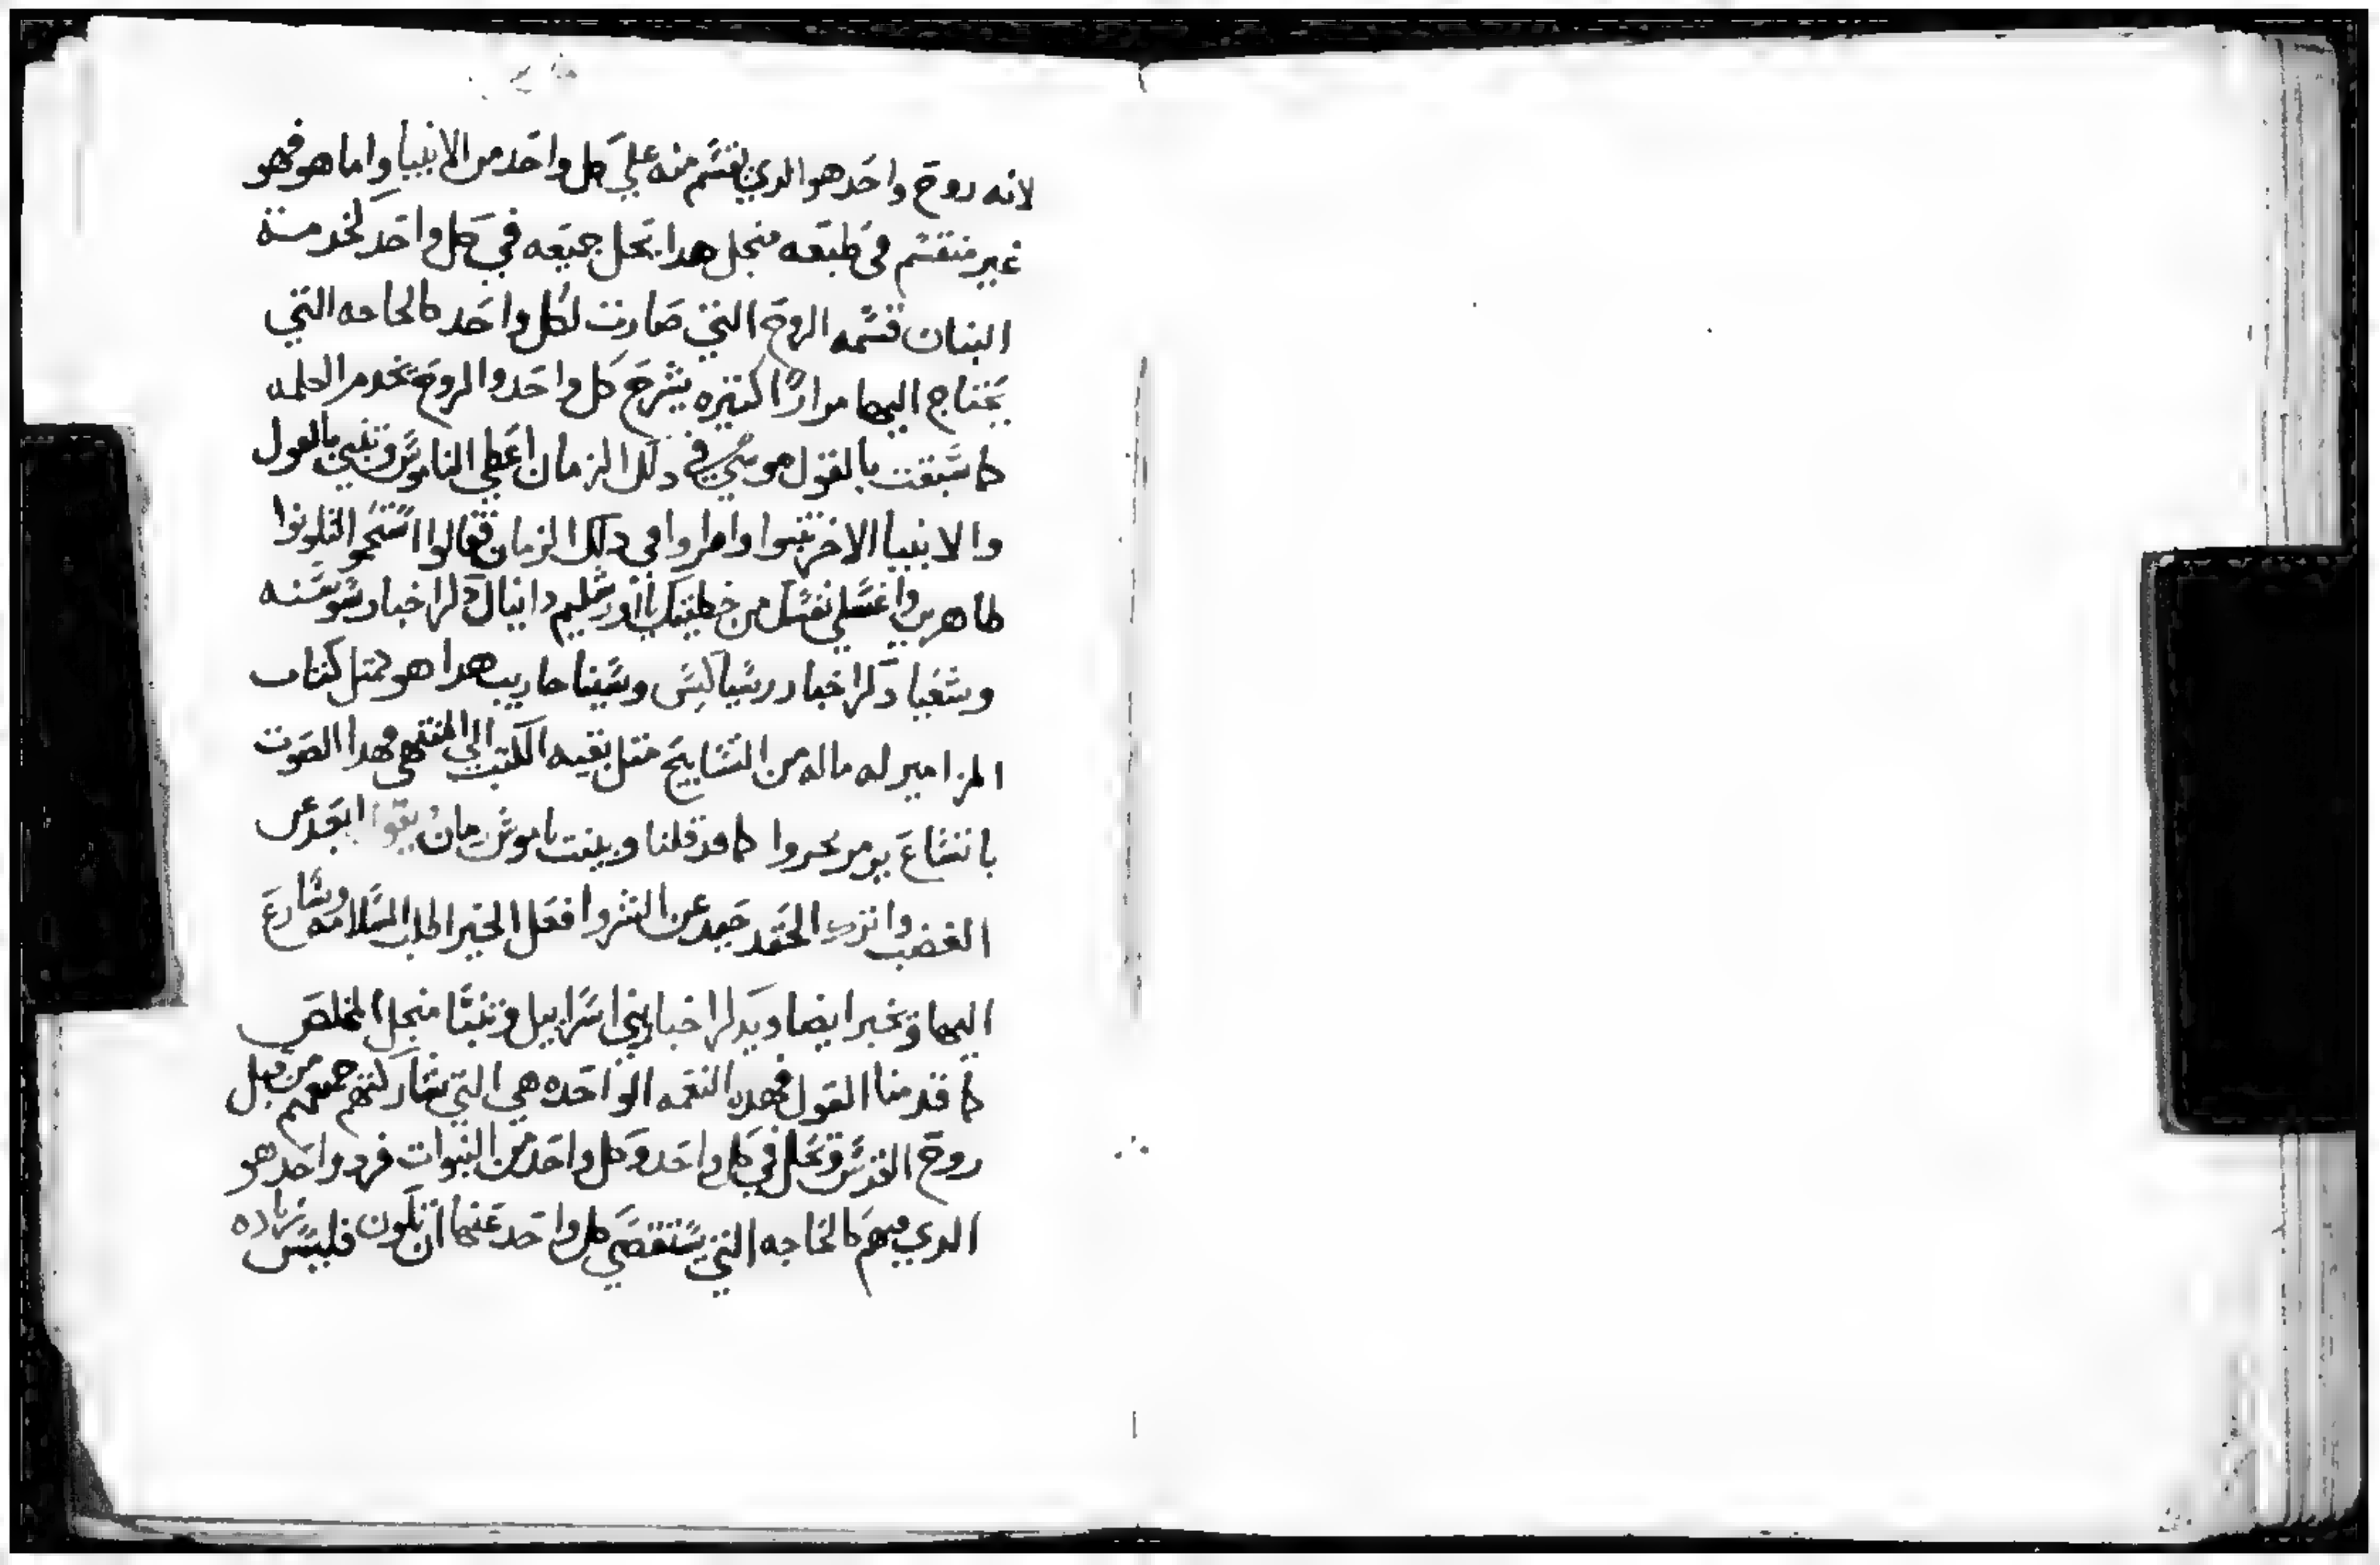 لانه روح واحد هو الدي يقسم منه علي كل واحد من الانبيا واما هو فهو
غير منقسم في طبعه منجل هدا تحل جميعه في كل واحد لخدمة
البنيان قسمه الروح التي صارت لكل واحد كالحاجه التي
يحتاج اليها مرارا كتيره يشرح كل واحد والروح تخدم الكلمه
كما سبقت بالقول موسي في دلك الزمان اعطي الناموس وتنبي بالقول
والانبيا الاخر تنبوا وامروا في دلك الزمان فقالوا استحموا لتكونوا
طاهرين واغسلي نفسك من خطيتك يا اورشليم دانيال دكر اخبار سوسنه
وشعيا دكر اخبار رسياكيس وسيناحاريب هدا هو متل كتاب
المزامير له ماله من التسابيح متل بقيه الكتب الي المنتهي فهدا الصوت
باتساع يومر كما قد قلنا ويبنت ناموس مان بعد عن
الغضب واترك الحقد حيد عن الشر وافعل الخير اطلب السلامه وسارع
اليها وتخبر ايضا ويدكر اخبار بني اسراييل وتنبا منجل المخلص
كما قدمنا القول فهده النعمه الواحده هي التي تشاركتهم جميعهم من قبل
روح القدس وتحل في كل واحد وكل واحد من النبوات فرد واحد هو
الدي فيهم كالحاجه التي يستقصي كل واحد عنها ان تكون فليس زياده